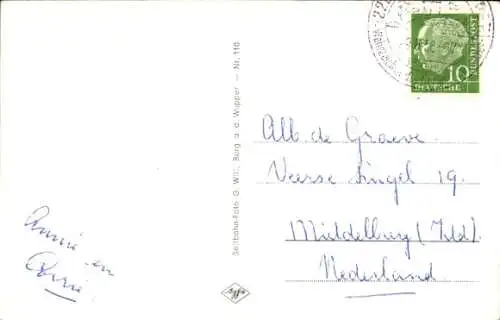 10
DEUTSCHE
BUNDESPOST
Seilbahn-Foto G. Witt, Burg a. d. Wupper — Nr. 110
Alb. de Graeve.
Veerse Singel 19.
Middelburg (Zld).
Nederland.
Annie en
Agfa